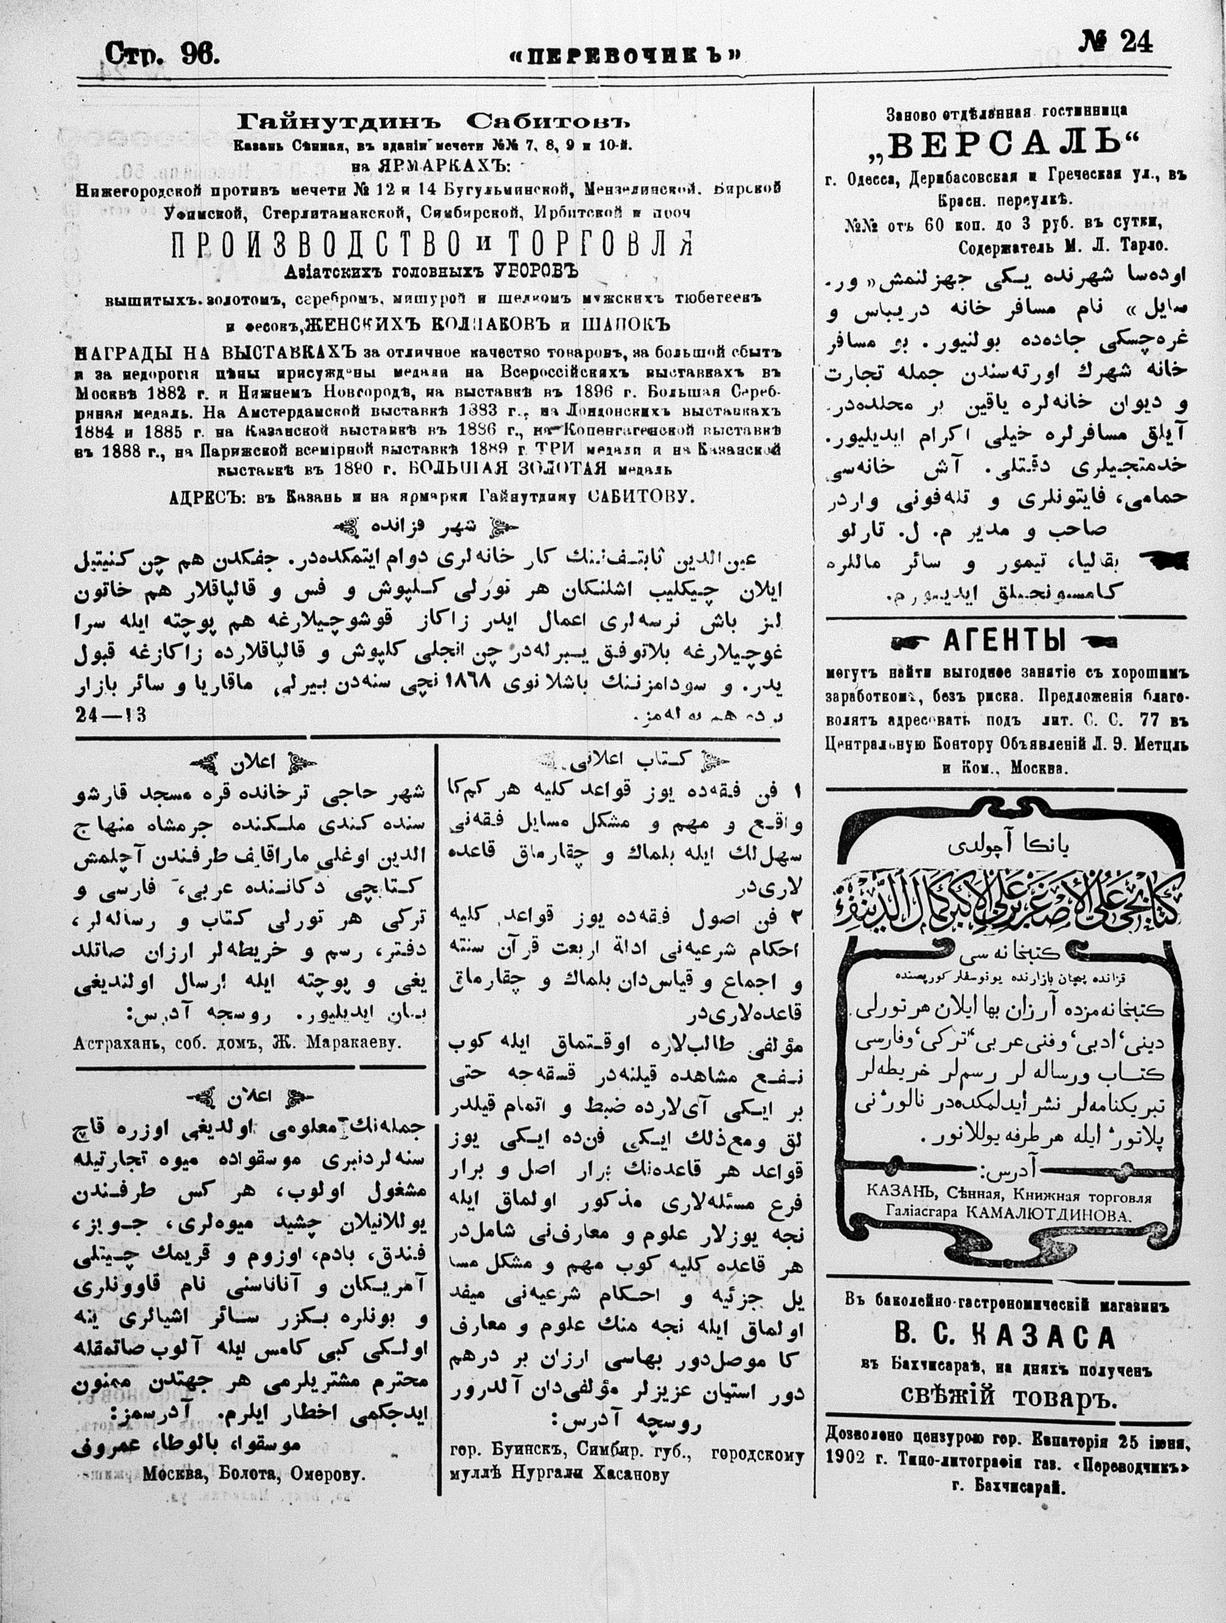 Стр. 96.
«ПЕРЕВОЧИКЪ»
№ 24
Гайнутдинъ Сабитовъ
Казань Сѣнная, въ зданіи мечети №№ 7, 8, 9 и 10-й.
на ЯРМАРКАХЪ:
Нижегородской противъ мечети № 12 и 14 Бугульминской, Мензелинской. Бирской
Уфимской, Стерлитамакской, Симбирской, Ирбитской и проч
ПРОИЗВОДСТВО и ТОРГОВЛЯ
Азіатскихъ головныхъ УБОРОВЪ
вышитыхъ золотомъ, серебромъ, мишурой и шелкомъ мужскихъ тюбетеекъ
и фесокъ, ЖЕНСКИХЪ КОЛПАКОВЪ и ШАПОКЪ
НАГРАДЫ НА ВЫСТАВКАХЪ за отличное качество товаровъ, за большой сбытъ
и за недорогія цѣны присуждены медали на Всероссійскихъ выставкахъ въ
Москвѣ 1882 г. и Нижнемъ Новгородѣ, на выставкѣ въ 1896 г. Большая Сереб-
ряная медаль. На Амстердамской выставкѣ 1883 г., на Лондонскихъ выставкахъ
1884 и 1885 г. на Казанской выставкѣ въ 1886 г., на Копенгагенской выставкѣ
въ 1888 г., на Парижской всемірной выставкѣ 1889 г. ТРИ медали и на Казанской
выставкѣ въ 1890 г. БОЛЬШАЯ ЗОЛОТАЯ медаль
АДРЕСЪ: въ Казань и на ярмарки Гайнутдину САБИТОВУ.
شهر قزانده
عين الدين ثابتف‌ننك كار خانه‌لرى دوام ايتمكده‌در. جفكدن هم چن كنيتيل
ايلان چيكليب اشلنكان هر تورلى كلپوش و فس و قالپاقلار هم خاتون
لنز باش نرسه‌لرى اعمال ايدر زاكاز قوشوچيلارغه هم پوچته ايله سرا
غوچيلارغه بلاتوفق يبرله‌در چن انجلى كلپوش و قالپاقلارده زاكازغه قبول
يدر. و سودامزننك باشلانوى ١٨٦٨ نچى سنه‌دن بيرلى ماقاريا و سائر بازار
24—13
اعلان
شهر حاجى ترخانده قره مسجد قارشو
سنده كندى ملكنده جرمشاه منهاج
الدين اوغلى ماراقايف طرفندن آچلمش
كتابچى دكاننده عربى، فارسى و
تركى هر تورلى كتاب و رساله‌لر،
دفتر، رسم و خريطه‌لر ارزان صاتلد
يغى و پوچته ايله ارسال اولنديغى
بيان ايديليور. روسجه آدرس:
Астрахань, соб. домъ, Ж. Маракаеву.
اعلان
جمله‌نك معلومى اولديغى اوزره قاچ
سنه‌لردنبرى موسقواده ميوه تجارتيله
مشغول اولوب، هر كس طرفندن
يوللانيلان چشيد ميوه‌لرى، جويز،
فندق، بادم، اوزوم و قريمك چيتلى
آمريكان و آناناسنى نام قاوونلرى
و بونلره بكزر سائر اشيالرى ينه
اولكى كبى كامس ايله آلوب صاتمقله
محترم مشتريلرمى هر جهتدن ممنون
ايدجكمى اخطار ايلرم. آدرسمز:
موسقوا، بالوطا، عمروف
Москва, Болота, Омерову.
كتاب اعلانى
١ فن فقه‌ده يوز قواعد كليه هر كم‌كا
واقع و مهم و مشكل مسايل فقه‌نى
سهل‌لك ايله بلماك و چقارماق قاعده
لارى‌در
٢ فن اصول فقه‌ده يوز قواعد كليه
احكام شرعيه‌نى ادلهٔ اربعت قرآن سنته
و اجماع و قياس‌دان بلماك و چقارماق
قاعده‌لارى‌در
مؤلفى طالب‌لاره اوقتماق ايله كوب
نفع مشاهده قيلنه‌در قسقه‌جه حتى
بر ايكى آى‌لارده ضبط و اتمام قيلدر
لق ومع‌ذلك ايكى فن‌ده ايكى يوز
قواعد هر قاعده‌نك برار اصل و برار
فرع مسئله‌لارى مذكور اولماق ايله
نجه يوزلار علوم و معارف‌نى شامل‌در
هر قاعده كليه كوب مهم و مشكل مسا
يل جزئيه و احكام شرعيه‌نى ميفد
اولماق ايله نجه منك علوم و معارف
كا موصل‌دور بهاسى ارزان بر درهم
دور استيان عزيزلر مؤلفى‌دان آلدرور
روسچه آدرس:
гор. Буинскъ, Симбир. губ., городскому
муллѣ Нургали Хасанову
Заново отдѣланная гостинница
„ВЕРСАЛЬ“
г. Одесса, Дерибасовская и Греческая ул., въ
Красн. переулкѣ.
№№ отъ 60 коп. до 3 руб. въ сутки,
Содержатель М. Л. Тарло.
اوده‌سا شهرنده يكى جهزلنمش «ور.
سايل» نام مسافر خانه دريباس و
غره‌چسكى جاده‌ده بولنيور. بو مسافر
خانه شهرك اورته‌سندن جمله تجارت
و ديوان خانه‌لره ياقين بر محلده‌در.
آيلق مسافرلره خيلى اكرام ايديليور.
خدمتجيلرى دقتلى. آش خانه‌سى
حمامى، فايتونلرى و تله‌فونى واردر
صاحب و مدير م. ل. تارلو
بقاليا، تيمور و سائر ماللره
كامسيونجيلق ايديورم.
АГЕНТЫ
могутъ найти выгодное занятіе съ хорошимъ
заработкомъ, безъ риска. Предложенія благо-
волятъ адресовать подъ лит. С. С. 77 въ
Центральную Контору Объявленій Л. Э. Метцль
и Ком., Москва.
يانكا آچولدى
كتابچى على الاصغر بن على الاكبر كمال الدينف
كتبخانه سى
قزانده پچان بازارنده يونوسفلر كورپسنده
كتبخانه‌مزده آرزان بها ايلان هر تورلى
دينى، ادبى، وفنى عربى، تركى، وفارسى
كتاب و رساله لر رسم‌لر خريطه‌لر
تبريكنامه‌لر نشر ايدلمكده‌در نالوژنى
پلاتوژ ايله هر طرفه يوللانور.
آدرس:
КАЗАНЬ, Сѣнная, Книжная торговля
Галіасгара КАМАЛЮТДИНОВА.
Въ баколейно-гастрономическій магазинъ
В. С. КАЗАСА
въ Бахчисараѣ, на дняхъ полученъ
СВѢЖІЙ ТОВАРЪ.
Дозволено цензурою гор. Евпаторія 25 іюня,
1902 г. Типо-литографія газ. «Переводчикъ»
г. Бахчисарай.